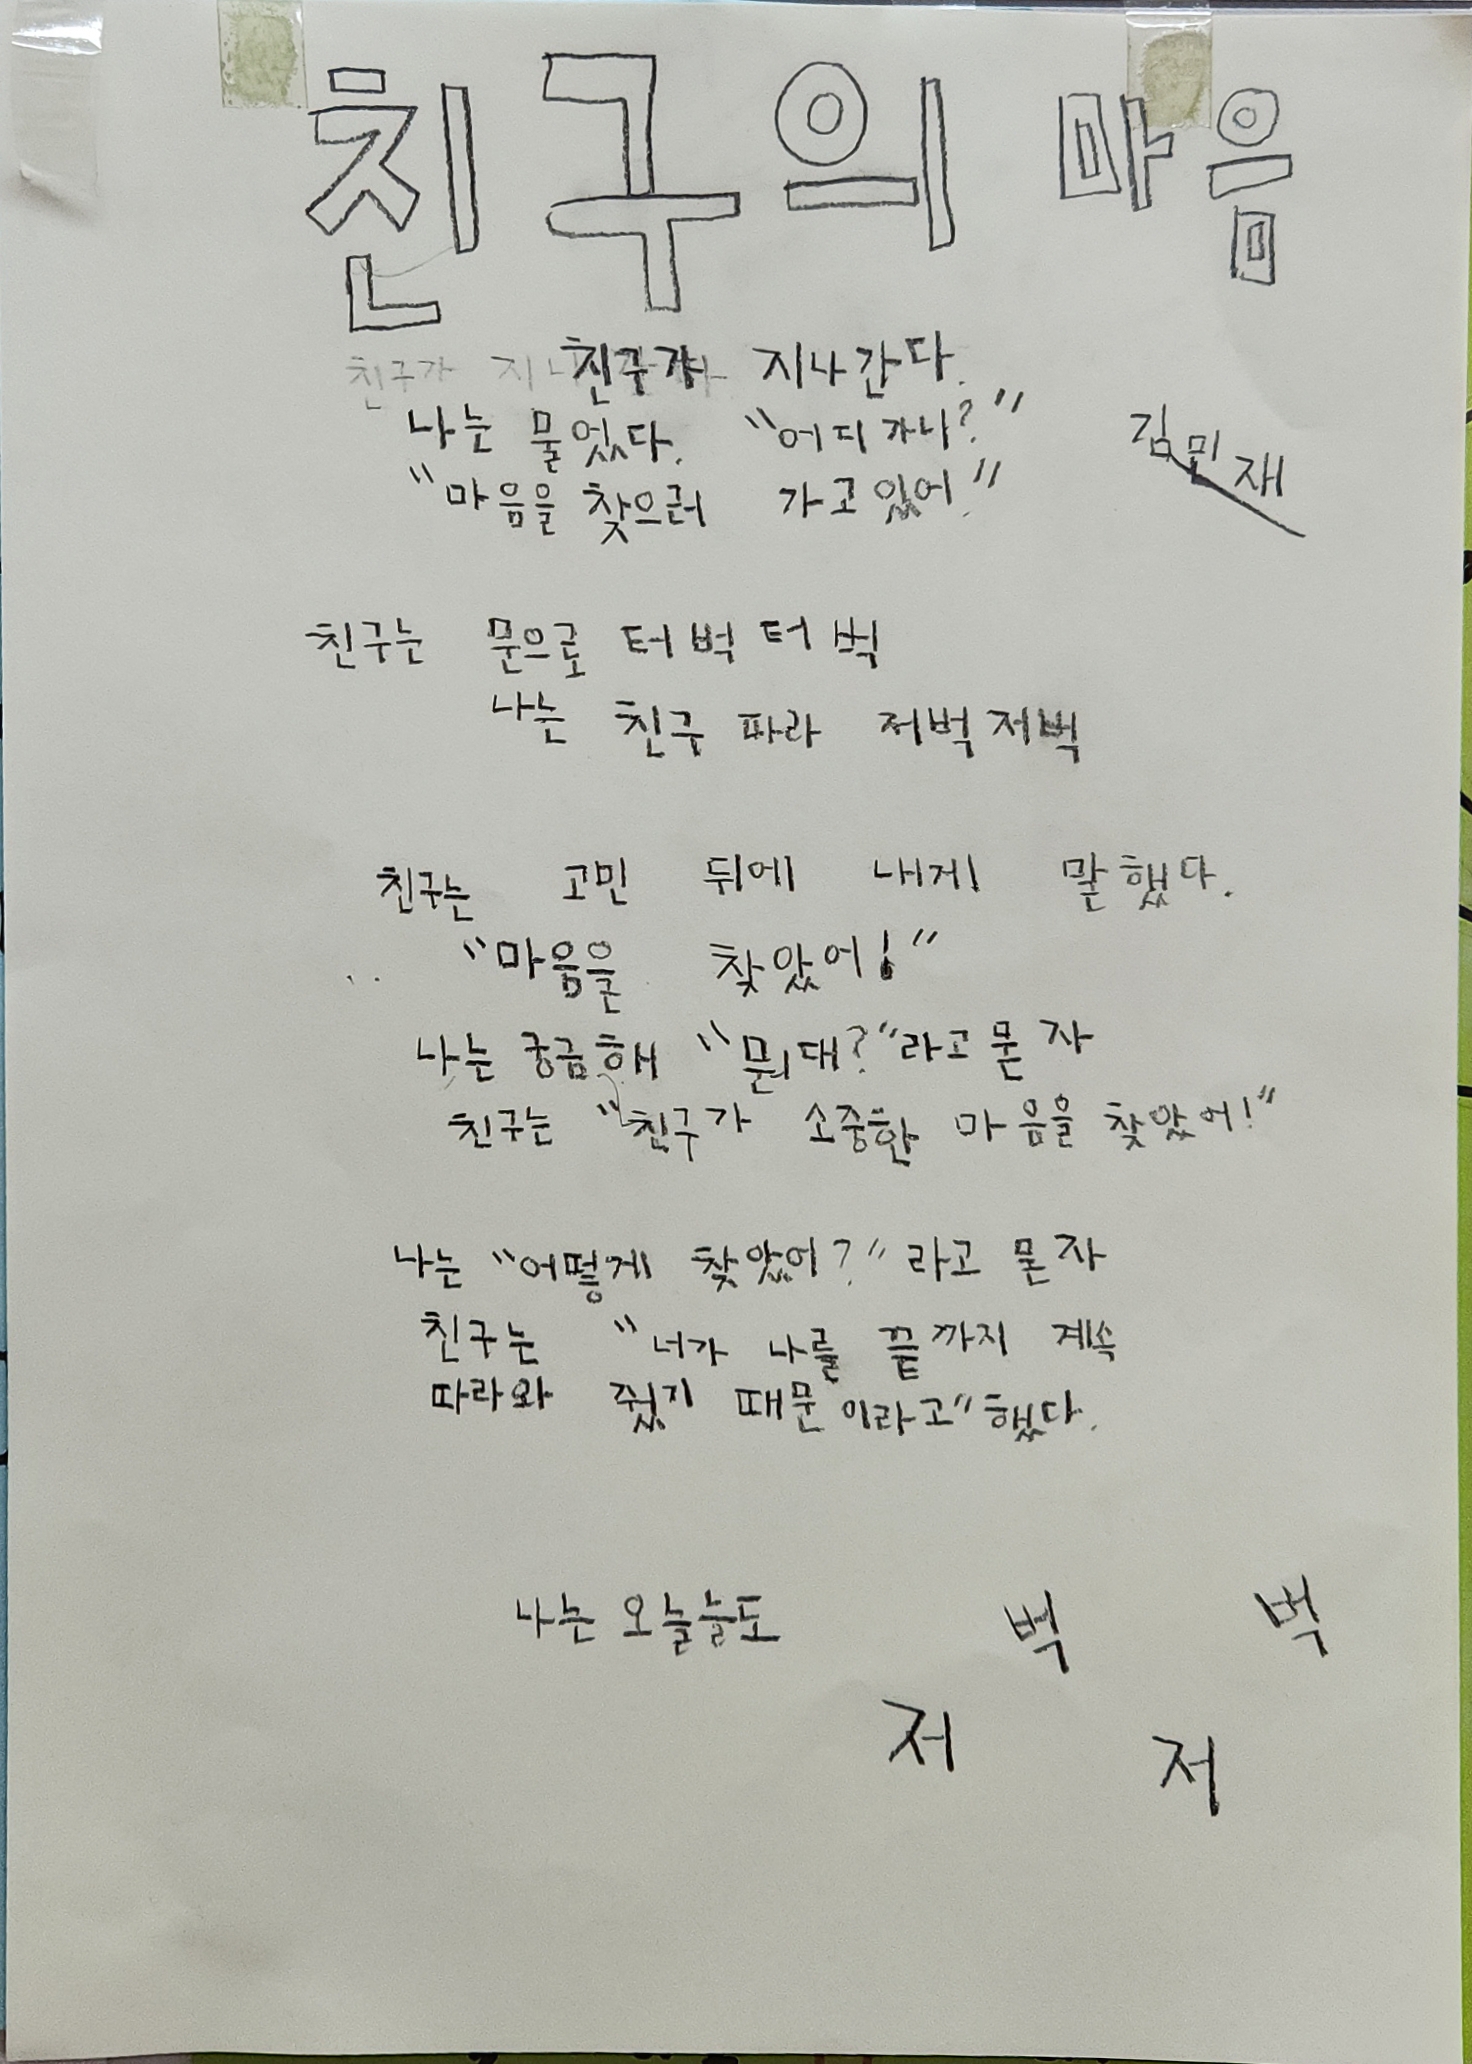 친구의 마음
친구가 지나간다.
나는 물었다. "어디가니?"
김민재
"마음을 찾으러 가고있어."
친구는 문으로 터벅터벅
나는 친구 따라 저벅저벅
친구는 고민 뒤에 내게 말했다.
"마음을 찾았어!"
나는 궁금해 "뭔대?"라고 묻자
친구는 "친구가 소중한 마음을 찾았어!"
나는 "어떻게 찾았어?"라고 묻자
친구는 "너가 나를 끝까지 계속
따라와 줬기 때문이라고"했다.
나는 오늘늘도 저벅 저벅